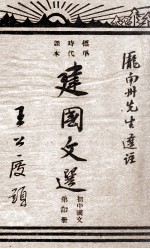 龐南卅先生選註
標準
時代
課本
建國文選
初中國文
第四册
王公度題